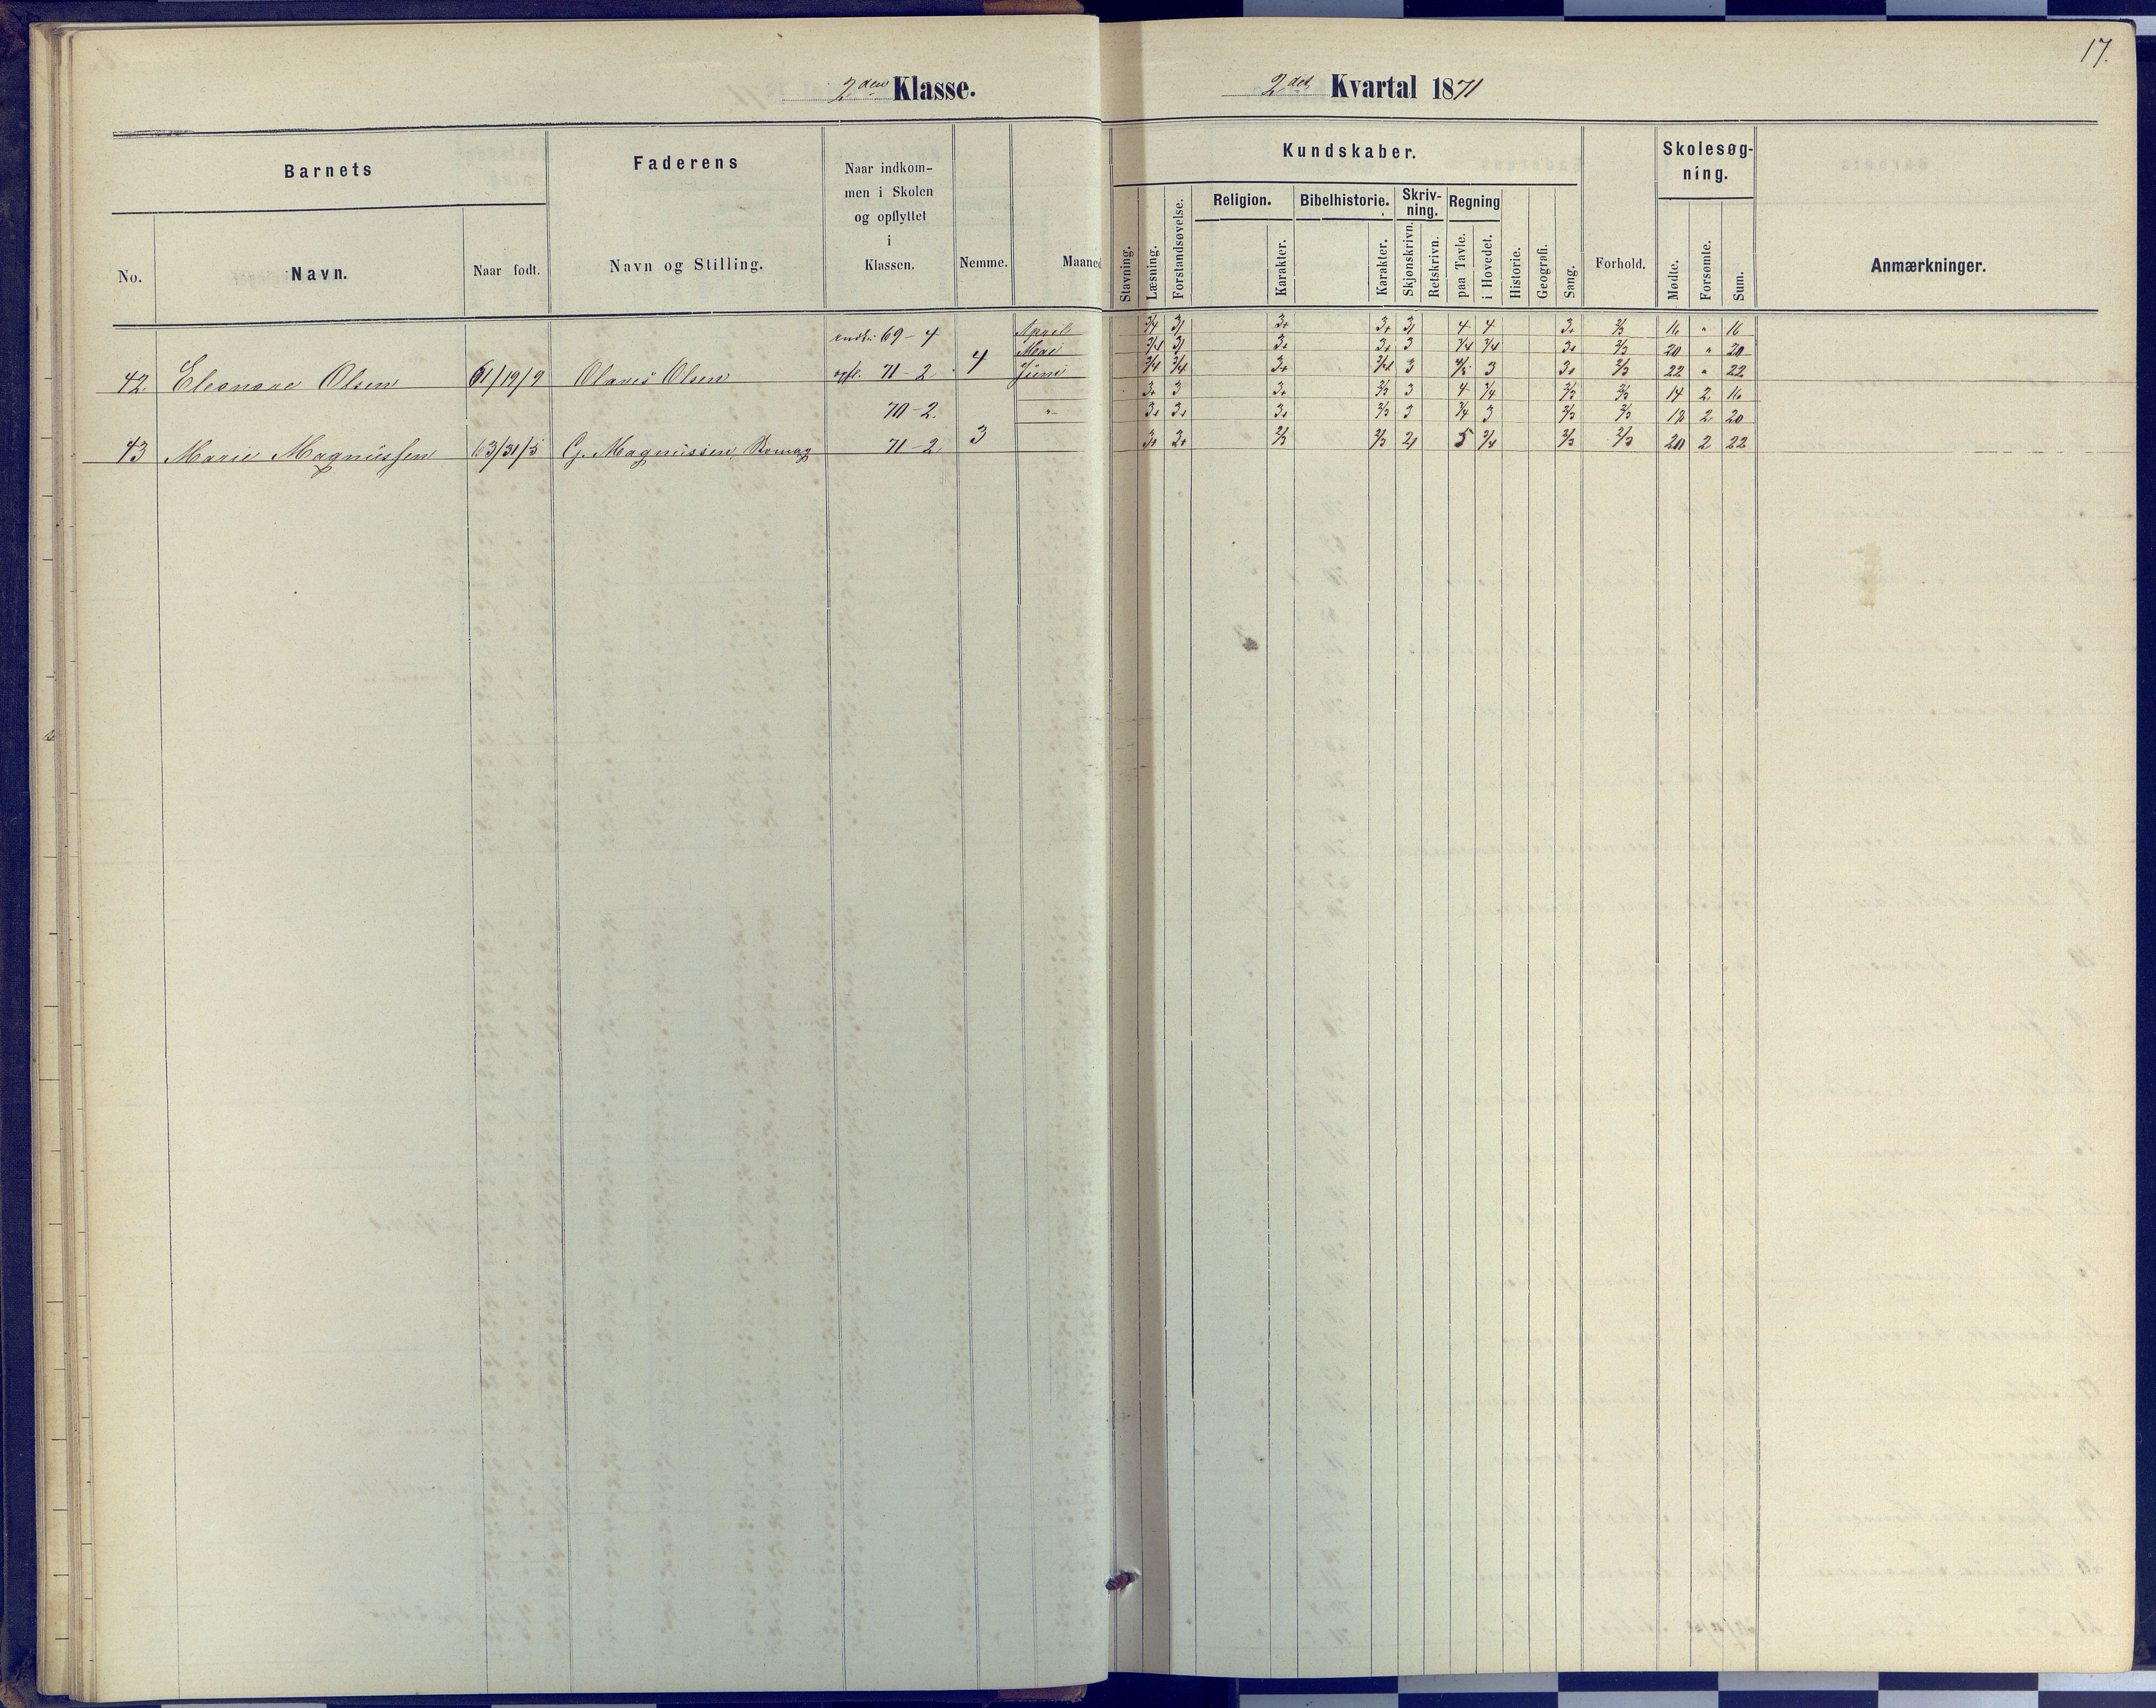 17.
2den Klasse.
2det Kvartal 1871
Barnets
Faderens
Naar indkom-
men i Skolen
og opflyttet
i
Klassen.
Nemme.
Maaned
No.
Navn.
Naar født.
Navn og Stilling.
Kundskaber.
Skolesøg-
ning.
Stavning.
Læsning.
Forstandsøvelse.
Religion.
Karakter.
Bibelhistorie.
Karakter.
Skriv-
ning.
Skjønskrivn.
Retskrivn.
Regning
paa Tavle.
i Hovedet.
Historie.
Geografi.
Sang.
Forhold.
Mødte.
Forsømte.
Sum.
Anmærkninger.
69-4 April 3/4 3/ 3+ 3+ 3/ 4 4 3+ 2/3 16 " 16
Mai 3/4 3/ 3+ 3+ 3 3/4 3/4 3+ 2/3 20 " 20
42. Eleonore Olsen 61/19/9 Olaves Olsen opfl. 71-2 4 Juni 3/4 3/4 3+ 3/4 3 3 3+ 2/3 22 " 22
3+ 3 3+ 2/3 3 4 3/4 2/3 2/3 14 2 16
70-2. " 3+ 3+ 3+ 2/3 3 3/4 3 2/3 2/3 18 2 20
43 Marie Magnussen 63/31/5 G. Magnussen 71-2 3 3+ 3+ 2/3 2/3 2/ 5 3/4 2/3 2/3 20 2 22